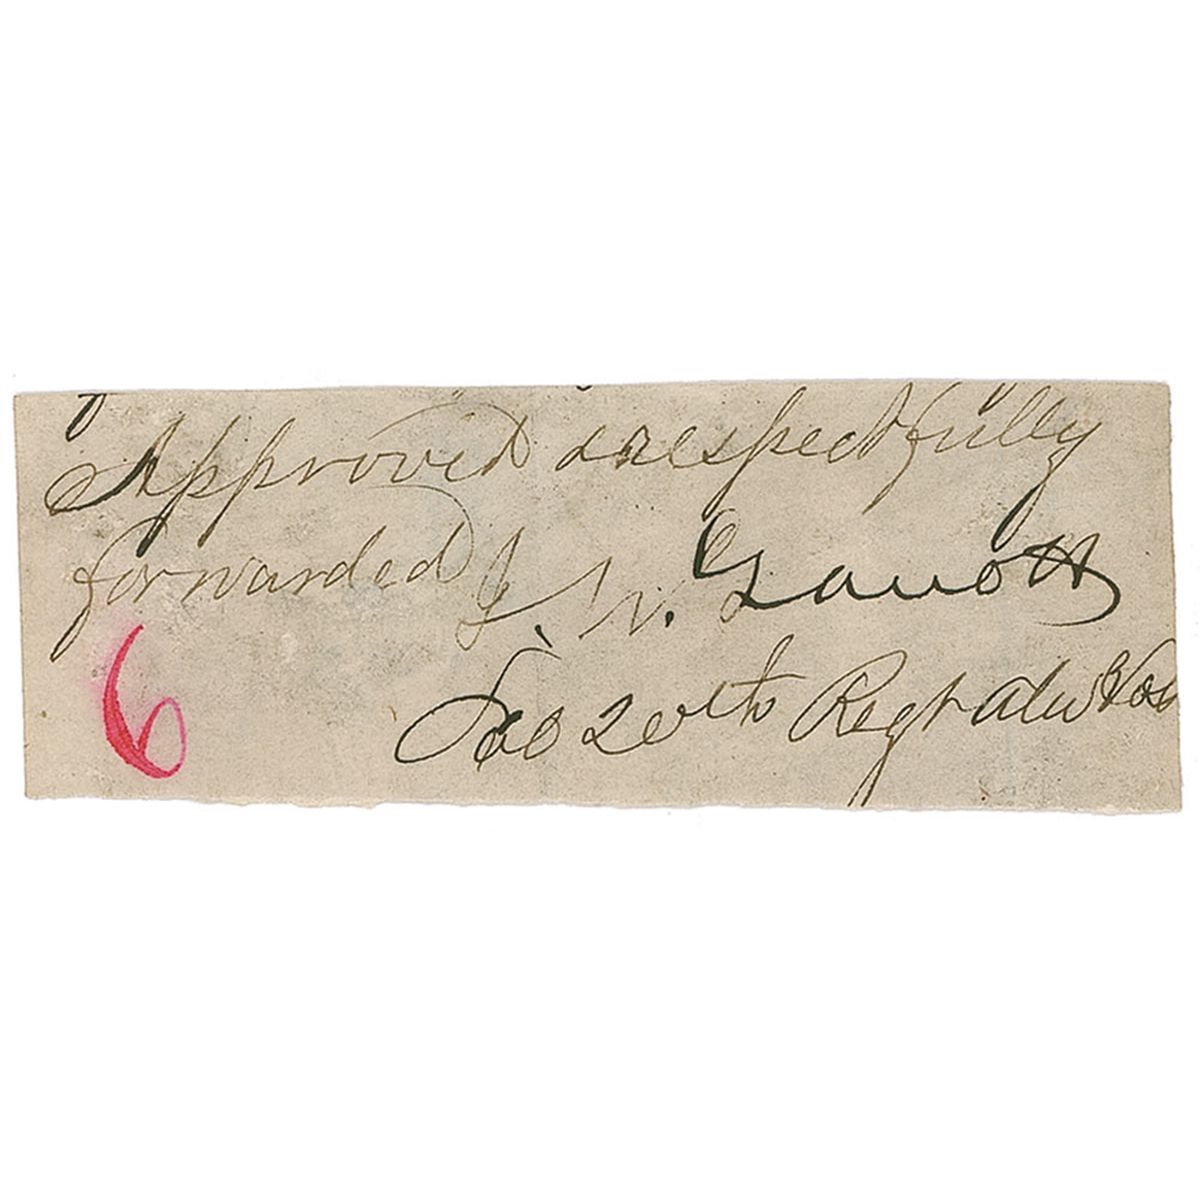 Approved & respectfully
forwarded I. W. Garrott
6
Col 20th Regt Ala Vols